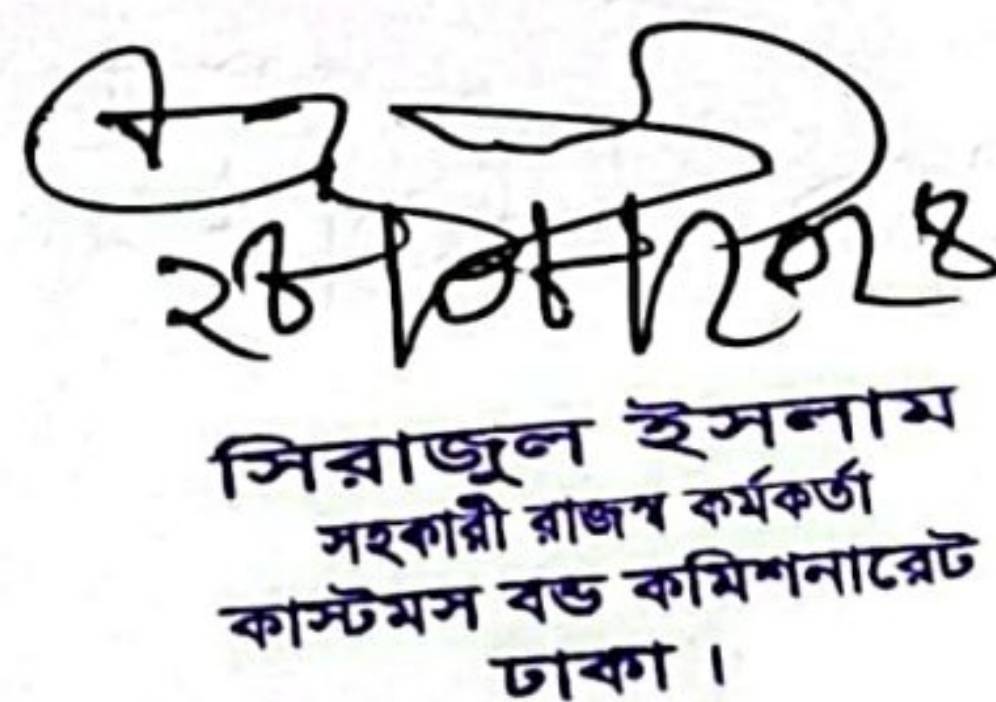 ২৮/০৮/২০২৪
সিরাজুল ইসলাম
সহকারী রাজস্ব কর্মকর্তা
কাস্টমস বন্ড কমিশনারেট
ঢাকা।